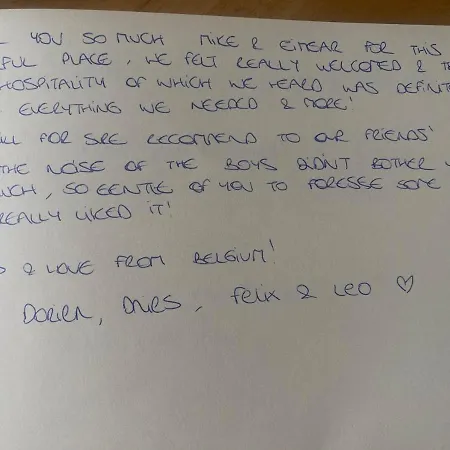 YOU SO MUCH MIKE & EIMEAR FOR THIS
FUL PLACE, WE FELT REALLY WELCOMED &
HOSPITALITY OF WHICH WE HEARD WAS DEFINIT
EVERYTHING WE NEEDED & MORE!
ILL FOR SRE RECOMMEND TO OR FRIENDS!
THE NOISE OF THE BOYS DIDN'T BOTHER
UCH, SO GENTLE OF YOU TO FORESEE SOME
REALLY LIKED IT!
& LOVE FROM BELGIUM!
DORIEN, DRIES, FELIX & LEO ♡